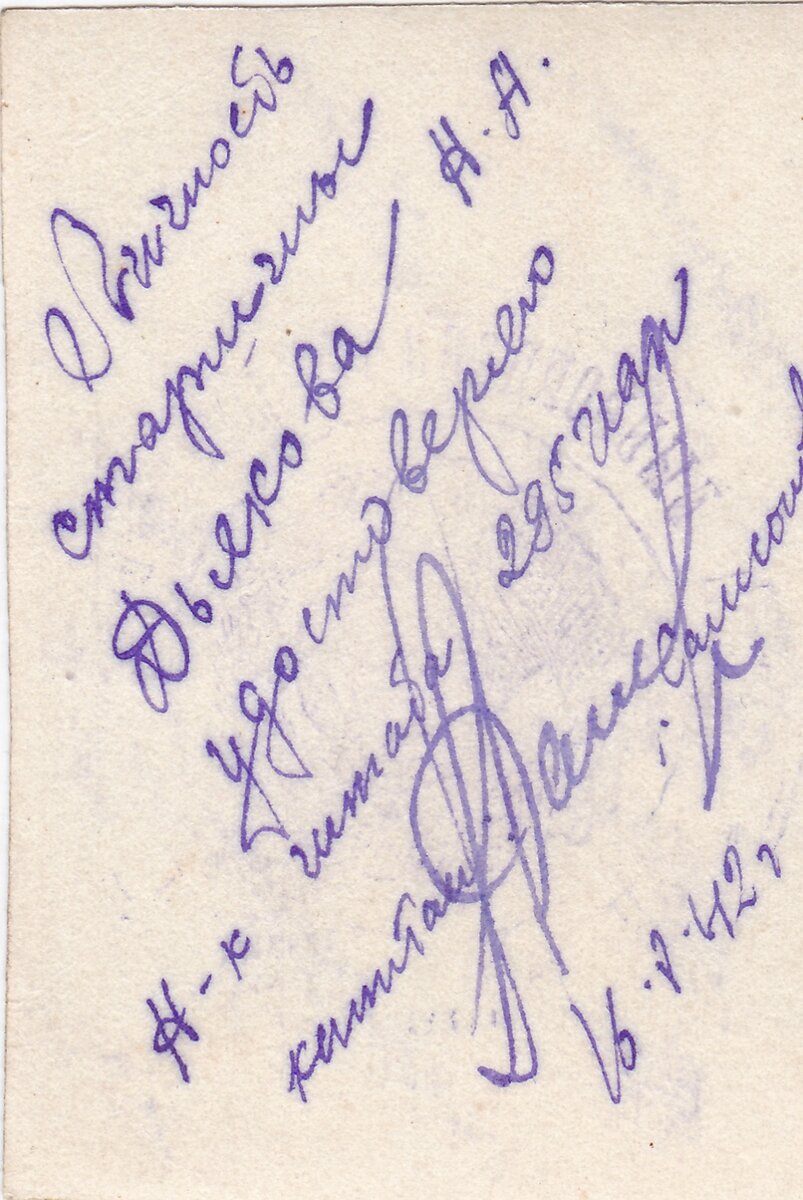 Личность
старшины
Дьякова Н.А.
удостоверяю
Н-к штаба 295 иап
капитан
16.8.42г